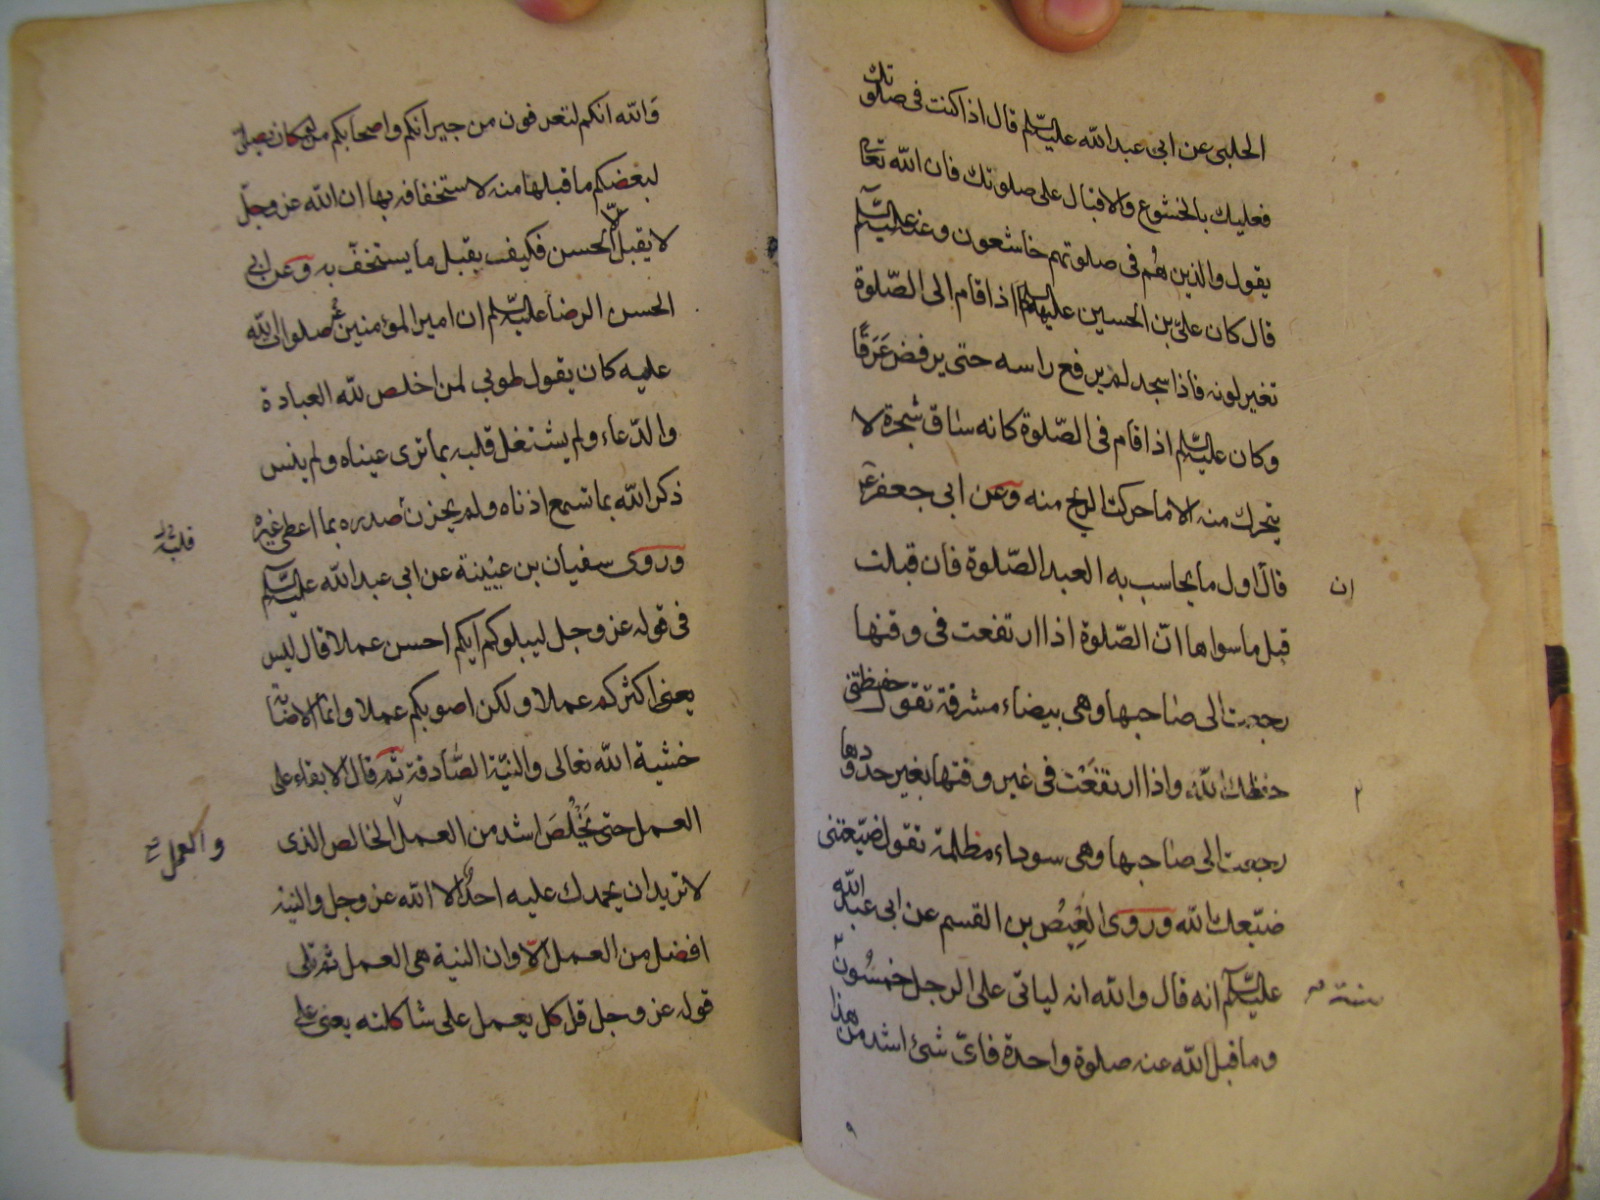 الحلبى عن ابى عبد الله عليه السّلم قال اذا كنت فى صلوتك
فعليك بالخشوع والاقبال على صلوتك فان الله تعالى
يقول والذين هُم فى صلوتهم خاشعون وعنه عليه السّلم
قال كان علىّ بن الحسين عليهما السلم اذا قام الى الصّلوة
تغير لونه فاذا سجد لم يرفع راسه حتى يرفض عَرَقًا
وكان عليه السّلم اذا قام فى الصّلوة كانه ساق شجرة لا
يتحرك منه الا ما حركت الريح منه وعن ابى جعفر ع
قال اول ما يحاسب به العبد الصّلوة فان قبلت
ان
قبل ما سواها انّ الصّلوة اذا ارتفعت فى وقتها
رجعت الى صاحبها وهى بيضاء مشرقة تقول حفظتنى
حفظك الله واذا ارتفعَت فى غير وقتها بغير حدودها
رجعت الى صاحبها وهى سوداء مظلمة تقول ضيّعتنى
ضيّعك الله وروى العِيصُ بن القسم عن ابى عبد الله
عليه السّلم انه قال والله انه لياتى على الرجل خمسُون
سنة
وما قبل الله عنه صلوة واحدة فاىّ شئ اشد من هذا
٩
وَالله انكم لتعرفون من جيرانكم واصحابكم من لو كان يصلى
لبعضكم ما قبلها منه لاستخفافه بها ان الله عز وجلّ
لا يقبل الّا الحسن فكيف يقبل ما يستخفّ به وعن ابى
الحسن الرضا عليه السّلم ان امير المؤمنين صلوات الله
عليه كان يقول طوبى لمن اخلص لله العبادة
والدّعاء ولم يشتغل قلبه بما ترى عيناه ولم ينس
ذكر الله بما تسمع اذناه ولم يحزن صدره بما اعطى غيره
قلبه
وروى سفيان بن عيينة عن ابى عبد الله عليه السّلم
فى قوله عز وجل ليبلوكم ايكم احسن عملا قال ليس
يعنى اكثركم عملا ولكن اصوبكم عملا وانما الاصابة
خشية الله تعالى والنيّة الصّادقة ثم قال الابقاء على
العمل حتى يَخْلُصَ اشد من العمل الخالص الذى
والعمل
لا تريد ان يحمدك عليه احدٌ الا الله عز وجل والنية
افضل من العمل الا وان النية هى العمل ثم تلى
قوله عز وجل قل كل يعمل على شاكلته يعنى على